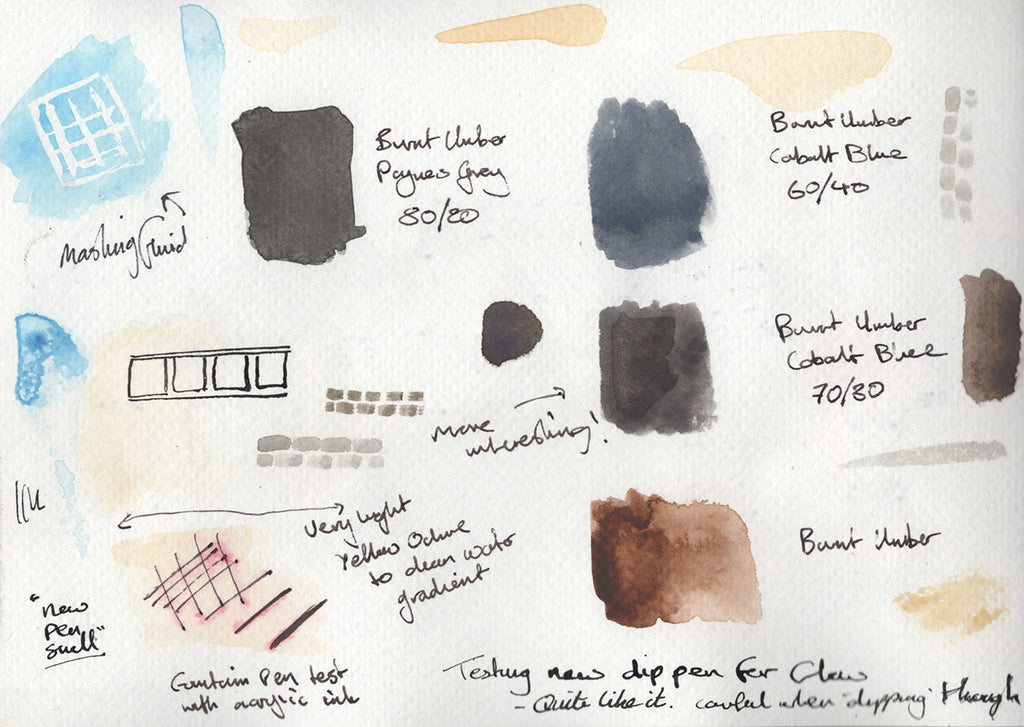 Burnt Umber
Paynes Grey
80/20
Burnt Umber
Cobalt Blue
60/40
Masking fluid
Burnt Umber
Cobalt Blue
70/30
More
interesting!
Very light
Yellow Ochre
to clean water
gradient
Burnt Umber
"new
pen
smell"
Fountain pen test
with acrylic ink
Testing new dip pen for
- Quite like it. careful when 'dipping' though